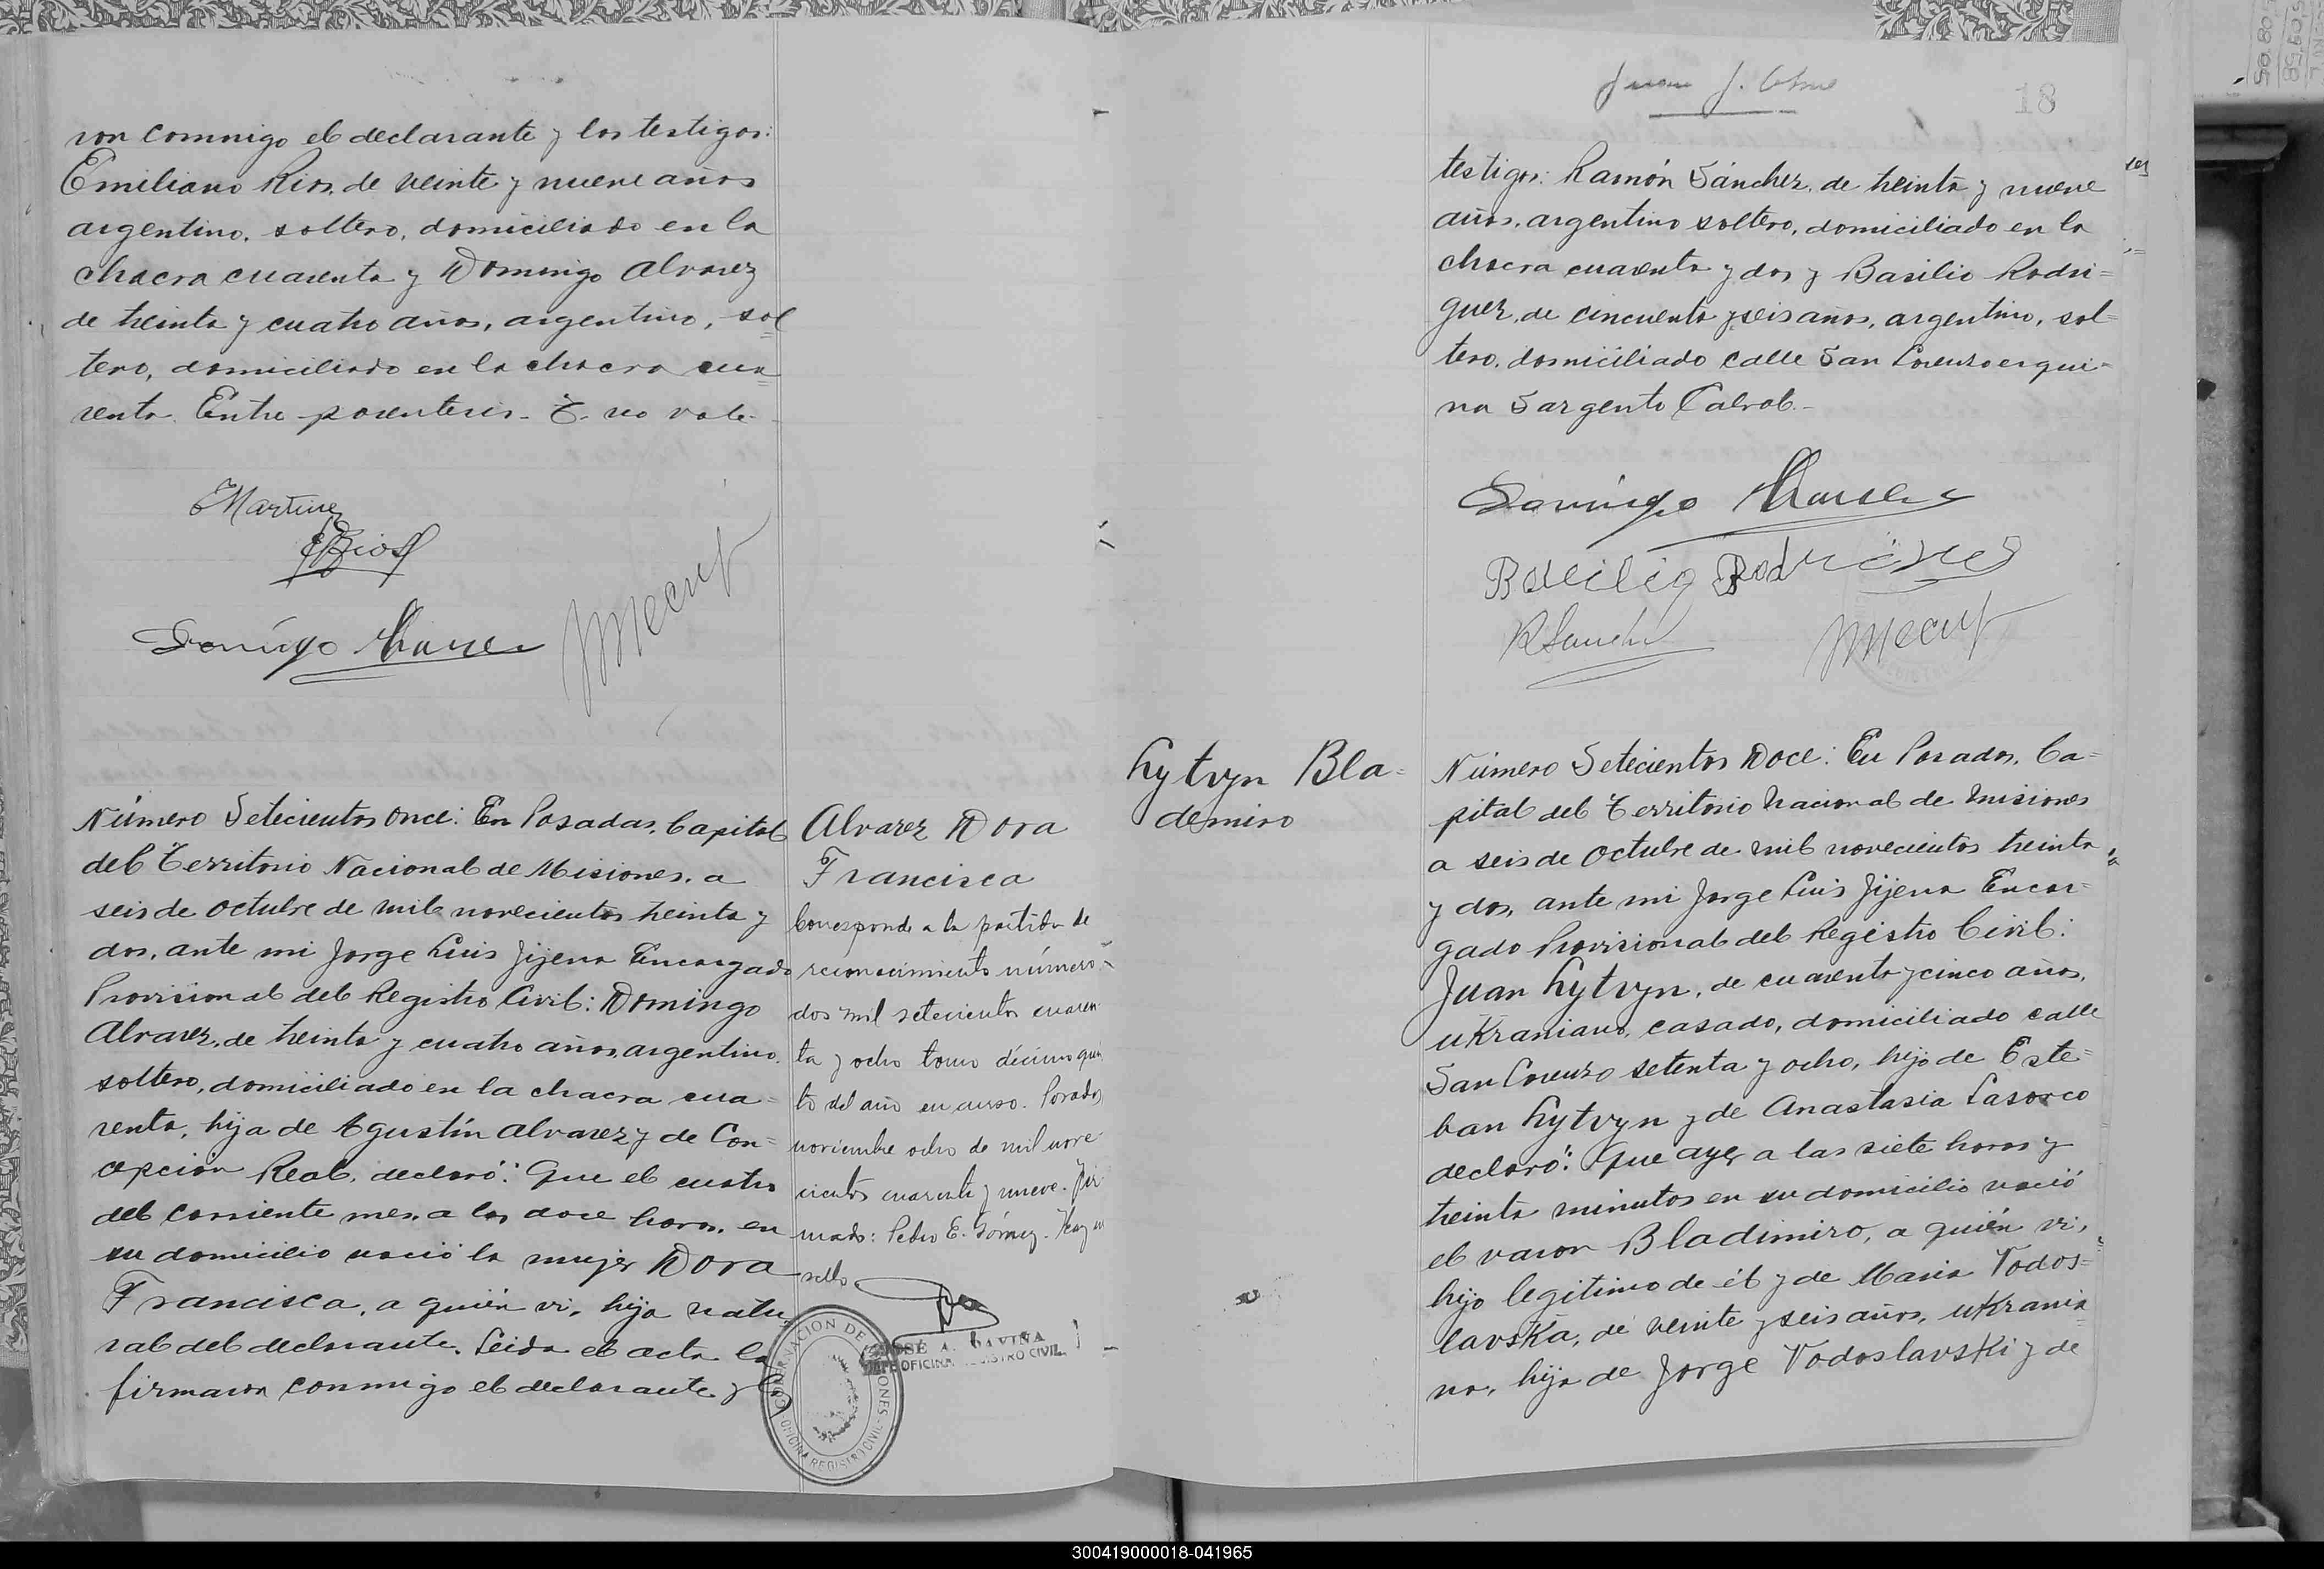 ron conmigo el declarante y los testigos:
Emiliano Rios, de veinte y nueve años
argentino, soltero, domiciliado en la
chacra cuarenta y Domingo Alvarez
de treinta y cuatro años, argentino, sol
tero, domiciliado en la chacra cua
renta. Entre parentesis - T. no vale.
EMartinez
ERios
Domingo Alvarez
Número Setecientos Once: En Posadas, Capital
del Territorio Nacional de Misiones, a
seis de octubre de mil novecientos treinta y
dos, ante mi Jorge Luis Jijena Encargado
Provisional del Registro Civil: Domingo
Alvarez, de treinta y cuatro años, argentino,
soltero, domiciliado en la chacra cua=
renta, hijo de Agustín Alvarez y de Con=
cepción Real, declaró: Que el cuatro
del corriente mes, a las doce horas, en
su domicilio nació la mujer Dora
Francisca, a quién vi, hija natu
ral del declarante. Leida el acta la
firmaron conmigo el declarante y los
Alvarez Dora
Francisca
Corresponde a la partida de
reconocimiento número
dos mil setecientos cuaren
ta y ocho tomo décimo quin
to del año en curso. Posadas,
noviembre ocho de mil nove
cientos cuarenta y nueve. Fir
mado: Pedro E. Gómez. Hay un
sello.
JOSÉ A. GAVIÑA
JEFE OFICINA REGISTRO CIVIL
GOBERNACION DE MISIONES
OFICINA REGISTRO CIVIL
Juan J.
18
testigos: Ramón Sánchez, de treinta y nueve
años, argentino soltero, domiciliado en la
chacra cuarenta y dos y Basilio Rodri=
guez, de cincuenta y seis años, argentino, sol=
tero, domiciliado calle San Lorenzo esqui=
na Sargento Cabral.-
Domingo Alvarez
Basilio Rodriguez
R Sanchez
Lytvyn Bla=
demiro
Número Setecientos Doce: En Posadas, Ca=
pital del Territorio Nacional de Misiones
a seis de octubre de mil novecientos treinta
y dos, ante mi Jorge Luis Jijena Encar=
gado Provisional del Registro Civil:
Juan Lytvyn, de cuarenta y cinco años,
uKraniano, casado, domiciliado calle
San Lorenzo setenta y ocho, hijo de Este=
ban Lytvyn y de Anastasia Lasorco
declaró: Que ayer a las siete horas y
treinta minutos en su domicilio nació
el varon Bladimiro, a quién vi,
hijo legitimo de él y de Maria Todos=
lavsKa, de veinte y seis años, uKrania
na, hija de Jorge TodoslavsKi y de
300419000018-041965